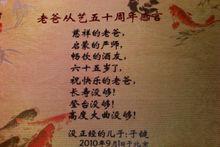 老爸从艺五十周年感言
慈祥的老爸,
启蒙的严师,
畅饮的酒友,
六十五岁了,
祝快乐的老爸,
长寿没够!
登台没够!
高度大曲没够!
没正经的儿子:子健
2010年9月1日于北京